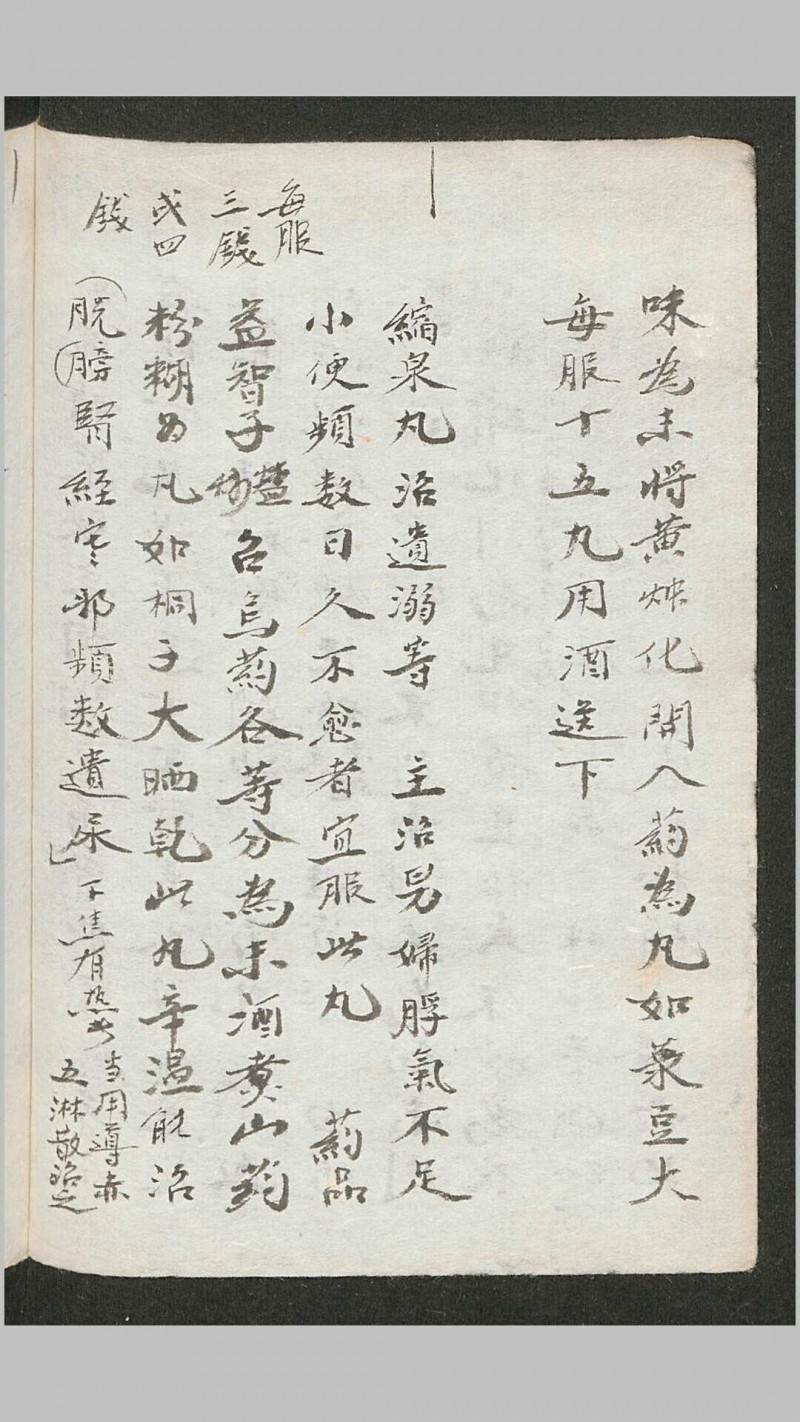 味為末將黄焠化開入药為丸如菉豆大
每服十五丸用酒送下
縮泉丸治遺溺等 主治男婦脬氣不足
小便頻数日久不愈者宜服此丸 药品
益智子 盐炒 台烏药各等分為末酒煮山药
粉糊为丸如桐子大晒乾此丸辛温能治
脱膀腎経寒邪頻数遺尿 下焦有热者
当用導赤
五淋散治之
每服
三錢
或四
錢